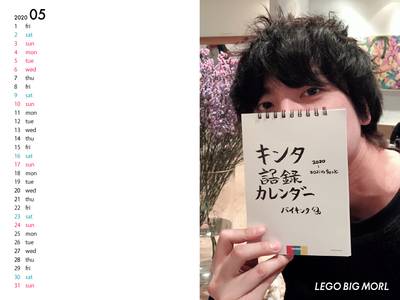 2020 05
1 fri
2 sat
3 sun
4 mon
5 tue
6 wed
7 thu
8 fri
9 sat
10 sun
11 mon
12 tue
13 wed
14 thu
15 fri
16 sat
17 sun
18 mon
19 tue
20 wed
21 thu
22 fri
23 sat
24 sun
25 mon
26 tue
27 wed
28 thu
29 fri
30 sat
31 sun
キンタ
語録
カレンダー
2020
バイキング
LEGO BIG MORL